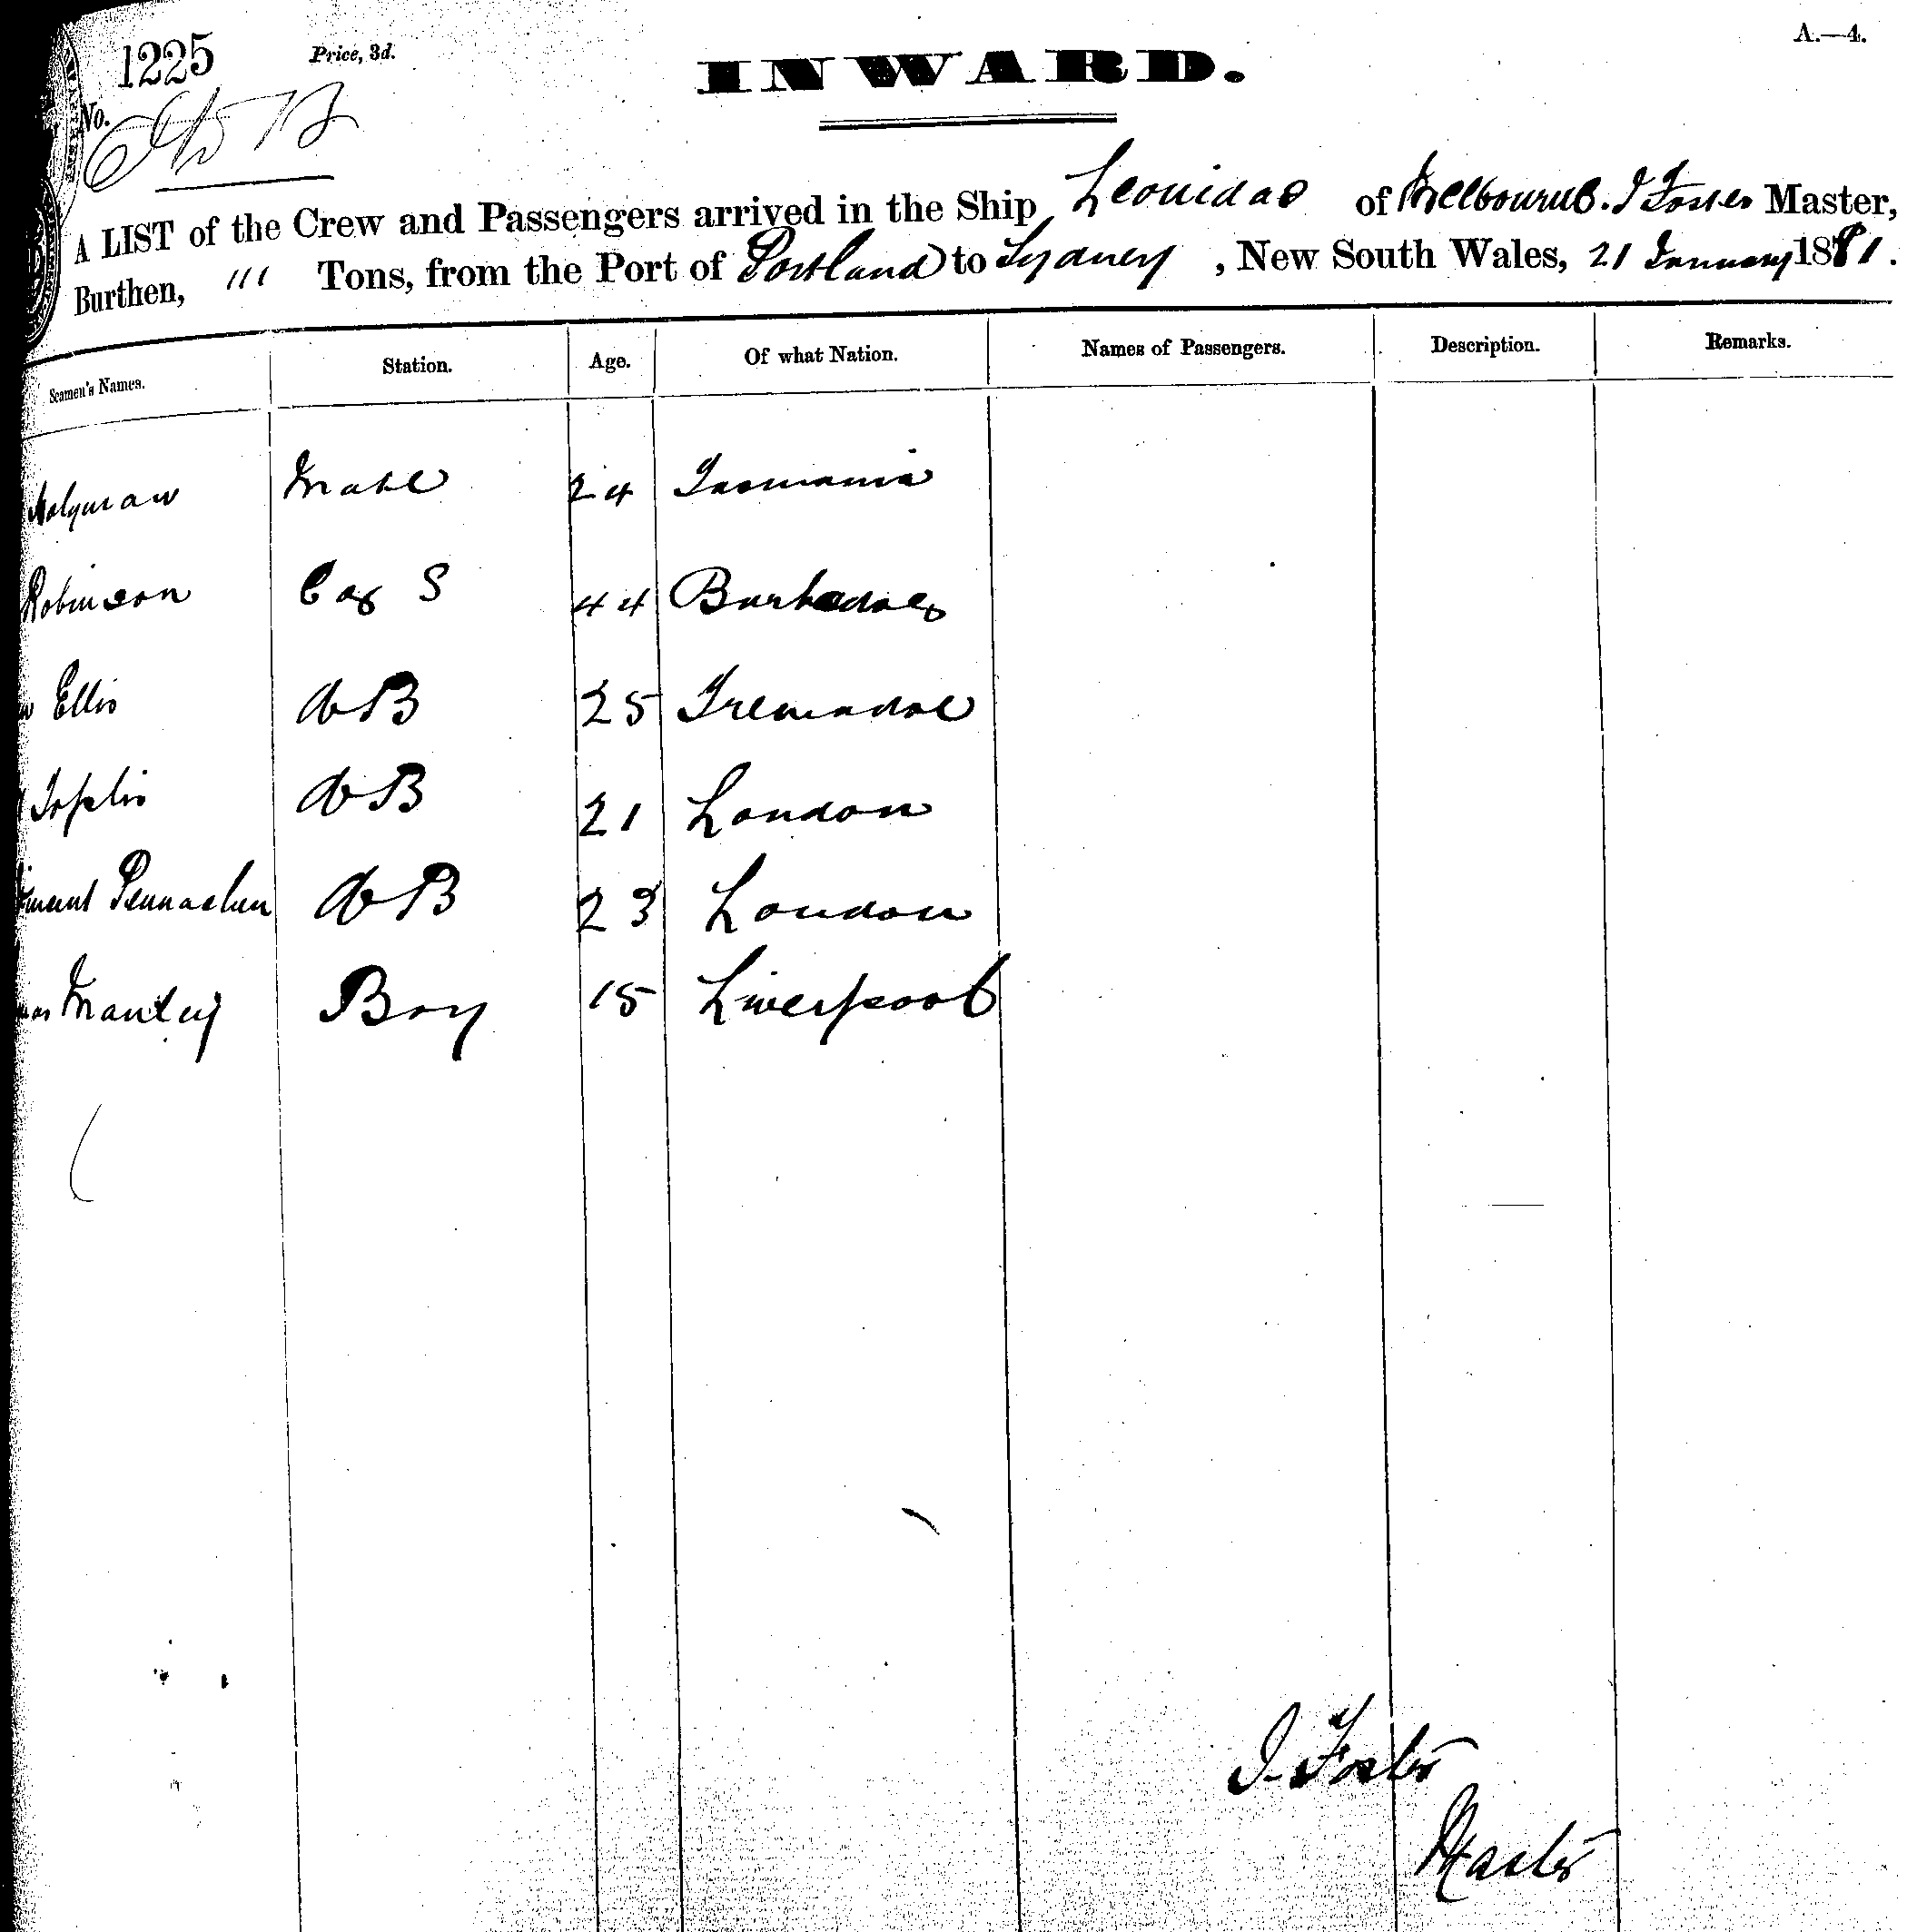 1225
Price, 3d.
INWARD.
A.—4.
No.
A LIST of the Crew and Passengers arrived in the Ship Leonidas of Melbourne. J Foster Master,
Burthen, 111 Tons, from the Port of Portland to Sydney, New South Wales, 21 January 1881.
Seamen's Names. Station. Age. Of what Nation. Names of Passengers. Description. Remarks.
Mate 24 Tasmania
Robinson S 44 Barbadoes
Ellis AB 25 Tremadoc
Toplis AB 21 London
AB 23 London
Boy 15 Liverpool
J. Foster
Master